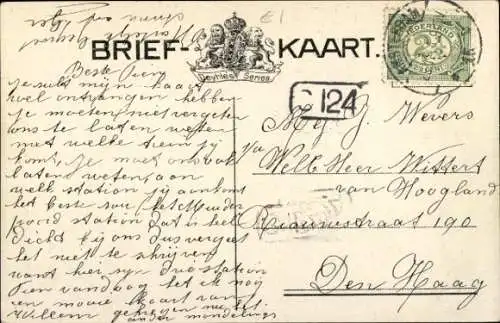 BRIEF- KAART.
Weenenk Series
NEDERLAND
2½
124
Beste Sien
Je sult mijn kaart
wel ontvangen hebben
je moeten niet vergeten
ons te laten weten
met welke trein jij
komt, je moet ons ook
laten weten aan
welk station jij aankomt
het beste zou het
poord station dat is heel
dicht bij ons dus vergeet
het niet te schrijven
want hier zijn drie station
Sien vandaag het ik nog
een mooie kaart van
Willem gekregen
ander mondelings
Mej. J. Wevers
p/a WelE. Heer Wittert
van Hoogland
Riouwstraat 190
Den Haag